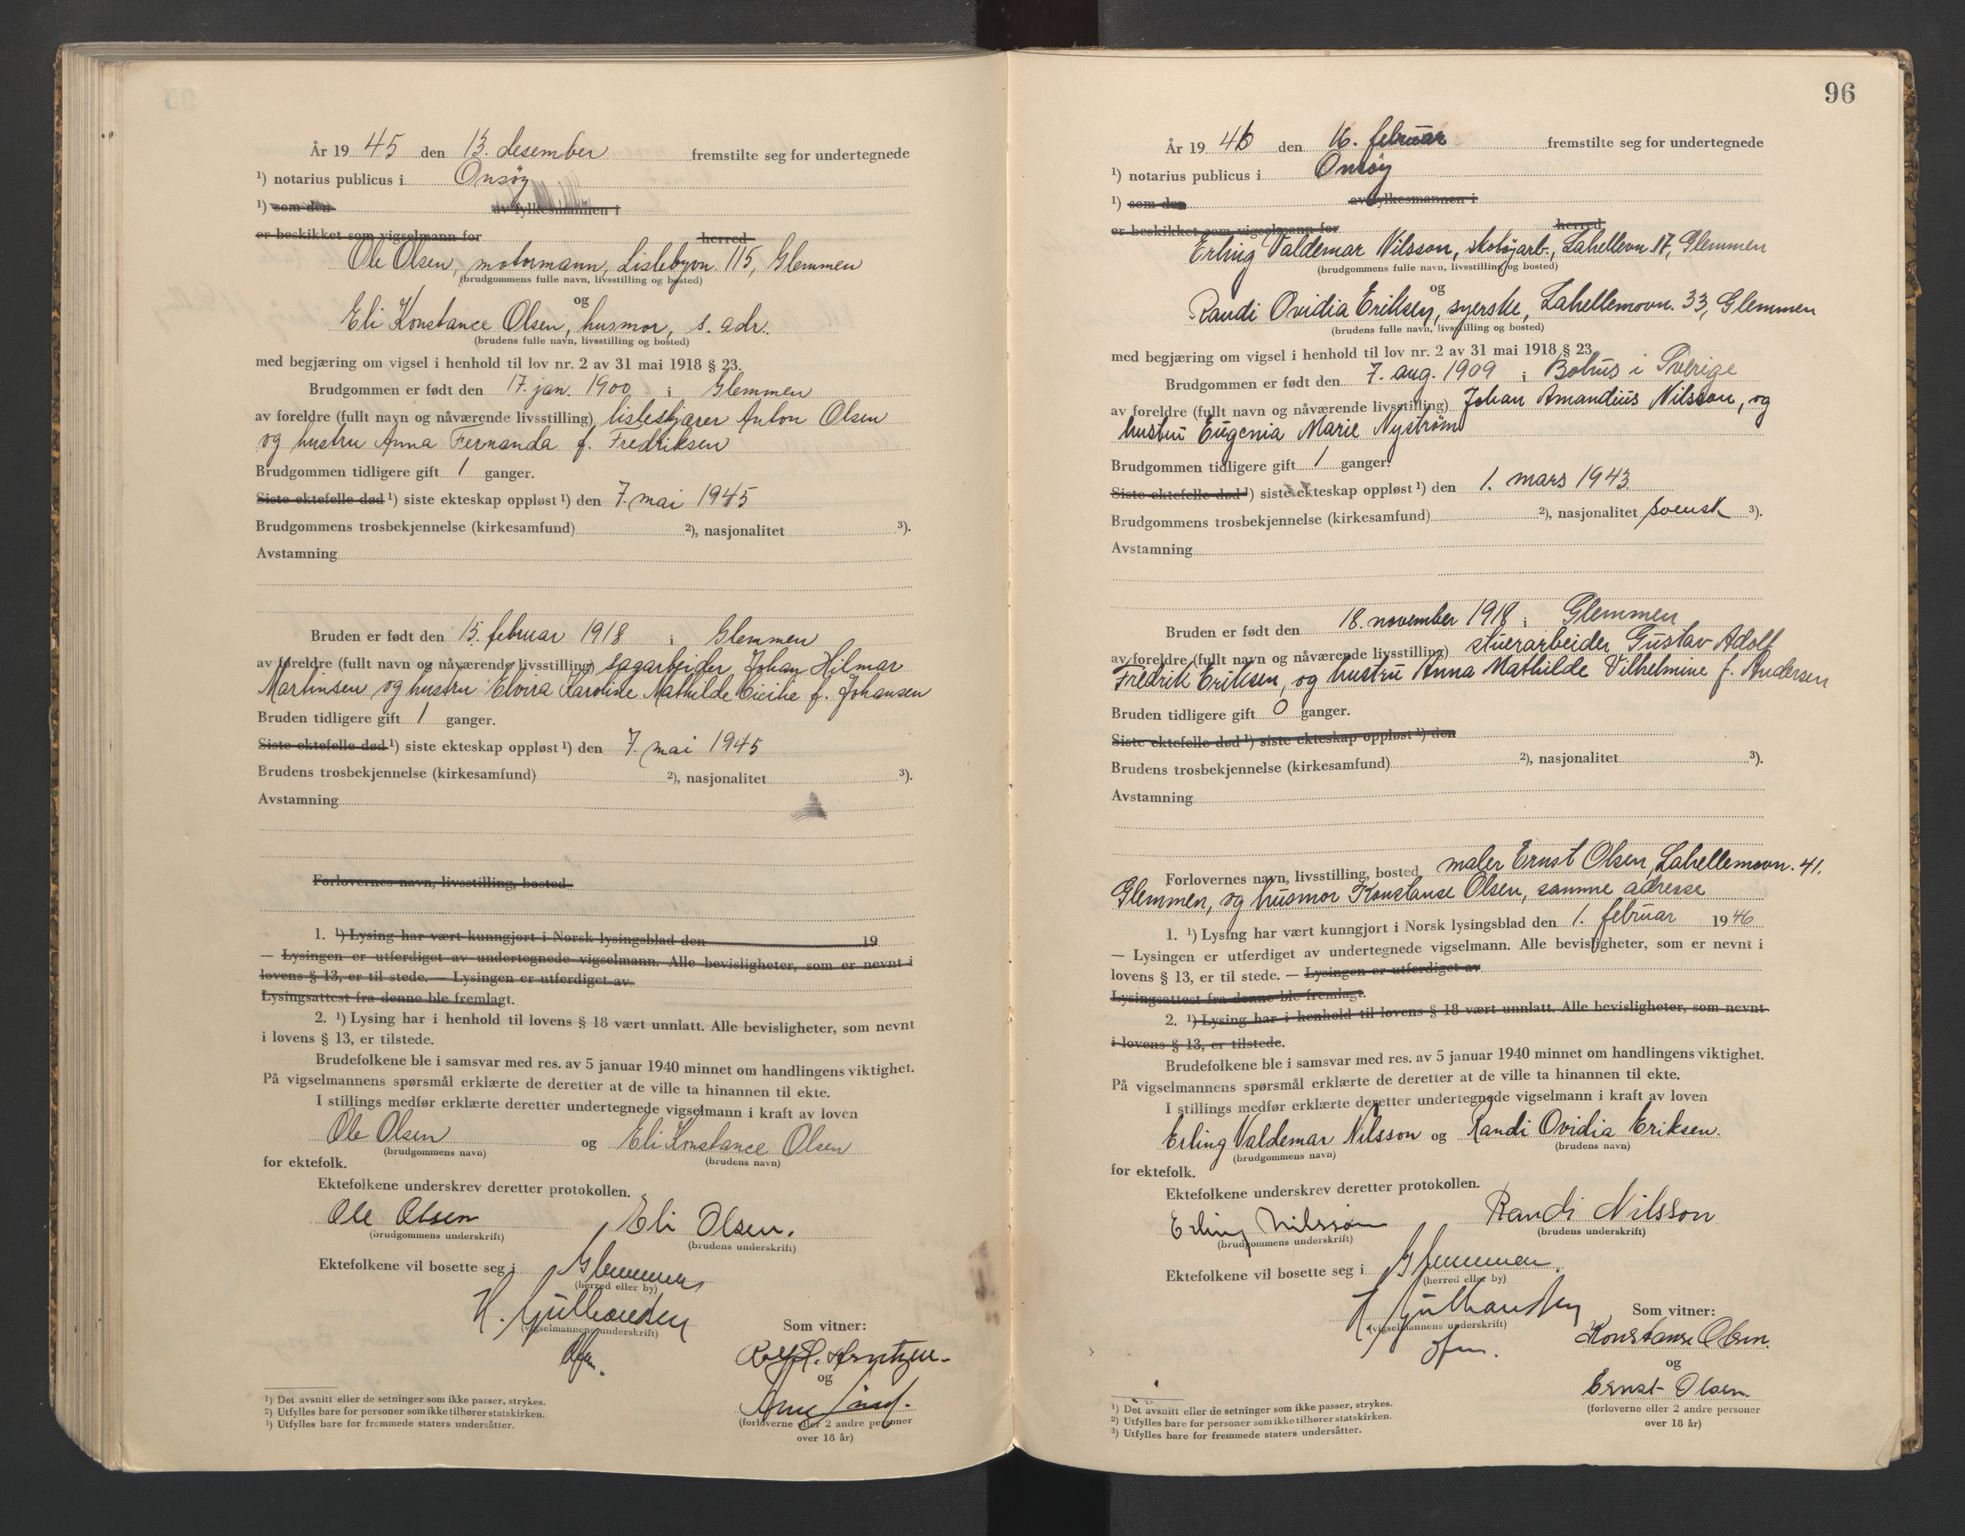 År 19 45 den 13. desember fremstilte seg for undertegnede
¹) notarius publicus i Onsøy
¹) som den av fylkesmannen i
er beskikket som vigselmann for herred
Ole Olsen, motormann, Lislebyvn. 115, Glemmen
(brudgommens fulle navn, livsstilling og bosted)
og
Eli Konstance Olsen, husmor, s. adr.
(brudens fulle navn, livsstilling og bosted)
med begjæring om vigsel i henhold til lov nr. 2 av 31 mai 1918 § 23.
Brudgommen er født den 17. jan. 1900 i Glemmen
av foreldre (fullt navn og nåværende livsstilling) listeskjærer Anton Olsen
og hustru Anna Fernanda f. Fredriksen
Brudgommen tidligere gift 1 ganger.
Siste ektefelle død ¹) siste ekteskap oppløst ¹) den 7. mai 1945
Brudgommens trosbekjennelse (kirkesamfund) ²), nasjonalitet ³).
Avstamning
Bruden er født den 15. februar 1918 i Glemmen
av foreldre (fullt navn og nåværende livsstilling) sagarbeider Johan Hilmar
Martinsen og hustru Elvira Karoline Mathilde Cicilie f. Johansen
Bruden tidligere gift 1 ganger.
Siste ektefelle død ¹) siste ekteskap oppløst ¹) den 7. mai 1945
Brudens trosbekjennelse (kirkesamfund) ²), nasjonalitet ³).
Avstamning
Forlovernes navn, livsstilling, bosted
1. ¹) Lysing har vært kunngjort i Norsk lysingsblad den 19
— Lysingen er utferdiget av undertegnede vigselmann. Alle bevisligheter, som er nevnt i
lovens § 13, er til stede. — Lysingen er utferdiget av
Lysingsattest fra denne ble fremlagt.
2. ¹) Lysing har i henhold til lovens § 18 vært unnlatt. Alle bevisligheter, som nevnt
i lovens § 13, er tilstede.
Brudefolkene ble i samsvar med res. av 5 januar 1940 minnet om handlingens viktighet.
På vigselmannens spørsmål erklærte de deretter at de ville ta hinannen til ekte.
I stillings medfør erklærte deretter undertegnede vigselmann i kraft av loven
Ole Olsen og Eli Konstance Olsen
(brudgommens navn) (brudens navn)
for ektefolk.
Ektefolkene underskrev deretter protokollen.
Ole Olsen Eli Olsen.
(brudgommens underskrift) (brudens underskrift)
Ektefolkene vil bosette seg i Glemmen
(herred eller by)
(vigselmannens underskrift)
Som vitner:
og
(forloverne eller 2 andre personer
over 18 år)
¹) Det avsnitt eller de setninger som ikke passer, strykes.
²) Utfylles bare for personer som ikke tilhører statskirken.
³) Utfylles bare for fremmede staters undersåtter.
96
År 19 46 den 16. februar fremstilte seg for undertegnede
¹) notarius publicus i Onsøy
¹) som den av fylkesmannen i
er beskikket som vigselmann for herred
Erling Valdemar Nilsson, skotøyarb., Lahellevn 17, Glemmen
(brudgommens fulle navn, livsstilling og bosted)
og
Randi Ovidia Eriksen, syerske, Lahellemovn. 33, Glemmen
(brudens fulle navn, livsstilling og bosted)
med begjæring om vigsel i henhold til lov nr. 2 av 31 mai 1918 § 23.
Brudgommen er født den 7. aug. 1909 i Bohus i Sverige
av foreldre (fullt navn og nåværende livsstilling) Johan Amandius Nilsson, og
hustru Eugenia Marie Nystrøm
Brudgommen tidligere gift 1 ganger.
Siste ektefelle død ¹) siste ekteskap oppløst ¹) den 1. mars 1943
Brudgommens trosbekjennelse (kirkesamfund) ²), nasjonalitet svensk ³).
Avstamning
Bruden er født den 18. november 1918 i Glemmen
av foreldre (fullt navn og nåværende livsstilling) stuerarbeider Gustav Adolf
Fredrik Eriksen, og hustru Anna Mathilde Vilhelmine f. Andersen
Bruden tidligere gift 0 ganger.
Siste ektefelle død ¹) siste ekteskap oppløst ¹) den
Brudens trosbekjennelse (kirkesamfund) ²), nasjonalitet ³).
Avstamning
Forlovernes navn, livsstilling, bosted maler Ernst Olsen, Lahellemovn. 41.
Glemmen, og husmor Konstanse Olsen, samme adresse
1. ¹) Lysing har vært kunngjort i Norsk lysingsblad den 1. februar 1946
— Lysingen er utferdiget av undertegnede vigselmann. Alle bevisligheter, som er nevnt i
lovens § 13, er til stede. — Lysingen er utferdiget av
Lysingsattest fra denne ble fremlagt.
2. ¹) Lysing har i henhold til lovens § 18 vært unnlatt. Alle bevisligheter, som nevnt
i lovens § 13, er tilstede.
Brudefolkene ble i samsvar med res. av 5 januar 1940 minnet om handlingens viktighet.
På vigselmannens spørsmål erklærte de deretter at de ville ta hinannen til ekte.
I stillings medfør erklærte deretter undertegnede vigselmann i kraft av loven
Erling Valdemar Nilsson og Randi Ovidia Eriksen.
(brudgommens navn) (brudens navn)
for ektefolk.
Ektefolkene underskrev deretter protokollen.
Erling Nilsson Randi Nilsson
(brudgommens underskrift) (brudens underskrift)
Ektefolkene vil bosette seg i Glemmen.
(herred eller by)
(vigselmannens underskrift)
Som vitner:
Konstanse Olsen.
og
Ernst Olsen.
(forloverne eller 2 andre personer
over 18 år)
¹) Det avsnitt eller de setninger som ikke passer, strykes.
²) Utfylles bare for personer som ikke tilhører statskirken.
³) Utfylles bare for fremmede staters undersåtter.